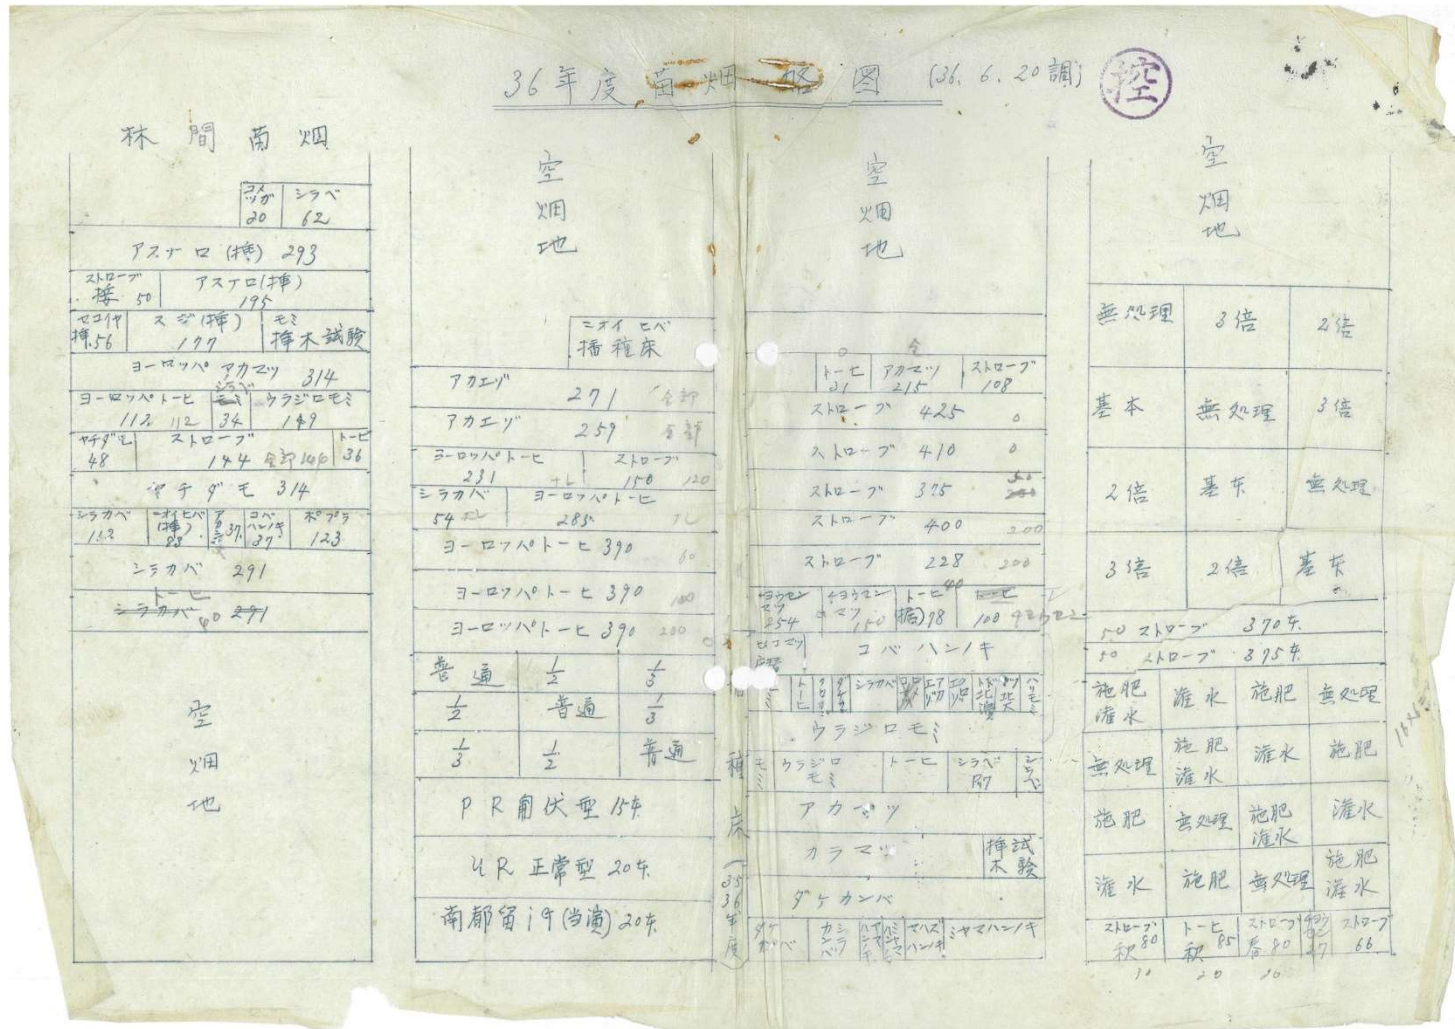 36年度苗畑略図 (36.6.20調)
控
林間苗畑
コメツガ 20
シラベ 62
アスナロ(挿) 293
ストローブ 接 50
アスナロ(挿) 195
セコイヤ 挿.56
スギ(挿) 177
モミ 挿木試験
ヨーロッパアカマツ 314
ヨーロッパトーヒ 112 112
シラベ 34
ウラジロモミ 149
ヤチダモ 48
ストローブ 144 全部
トーヒ 36
ヤチダモ 314
シラカベ
ニオイヒバ(挿) 83
37
コバハンノキ 37
ポプラ 123
シラカバ 291
トーヒ 40
シラカバ 291
空畑地
空畑地
ニオイヒバ 播種床
アカエゾ 271 全部
アカエゾ 259 全部
ヨーロッパトーヒ 231
ストローブ 150 120
シラカバ 54
ヨーロッパトーヒ 285
ヨーロッパトーヒ 390 60
ヨーロッパトーヒ 390 100
ヨーロッパトーヒ 390 200
普通 1/2 1/3
1/2 普通 1/3
1/3 1/2 普通
PR 15本
正常型 20本
20本
種床(35 36年度
空畑地
トーヒ 31
アカマツ 215
ストローブ 108
ストローブ 425 0
ストローブ 410 0
ストローブ 375
ストローブ 400 200
ストローブ 228 200
チョウセンマツ 254
チョウセンマツ 150
トーヒ 40 78
トーヒ 100 チョウセン
コバハンノキ
モミ
トーヒ
シラカバ
ハリモミ
ウラジロモミ
モミ
ウラジロモミ
トーヒ
シラベ
シラベ
アカマツ
カラマツ
挿木試験
ダケカンバ
ミヤマハンノキ
空畑地
無処理 3倍 2倍
基本 無処理 3倍
2倍 基本 無処理
3倍 2倍 基本
50 ストローブ 370本
50 ストローブ 375本
施肥灌水 灌水 施肥 無処理
無処理 施肥灌水 灌水 施肥
施肥 無処理 施肥灌水 灌水
灌水 施肥 無処理 施肥灌水
ストローブ 秋 80
トーヒ 秋 85
ストローブ 春 80
チョウセン 27
ストローブ 66
20 20